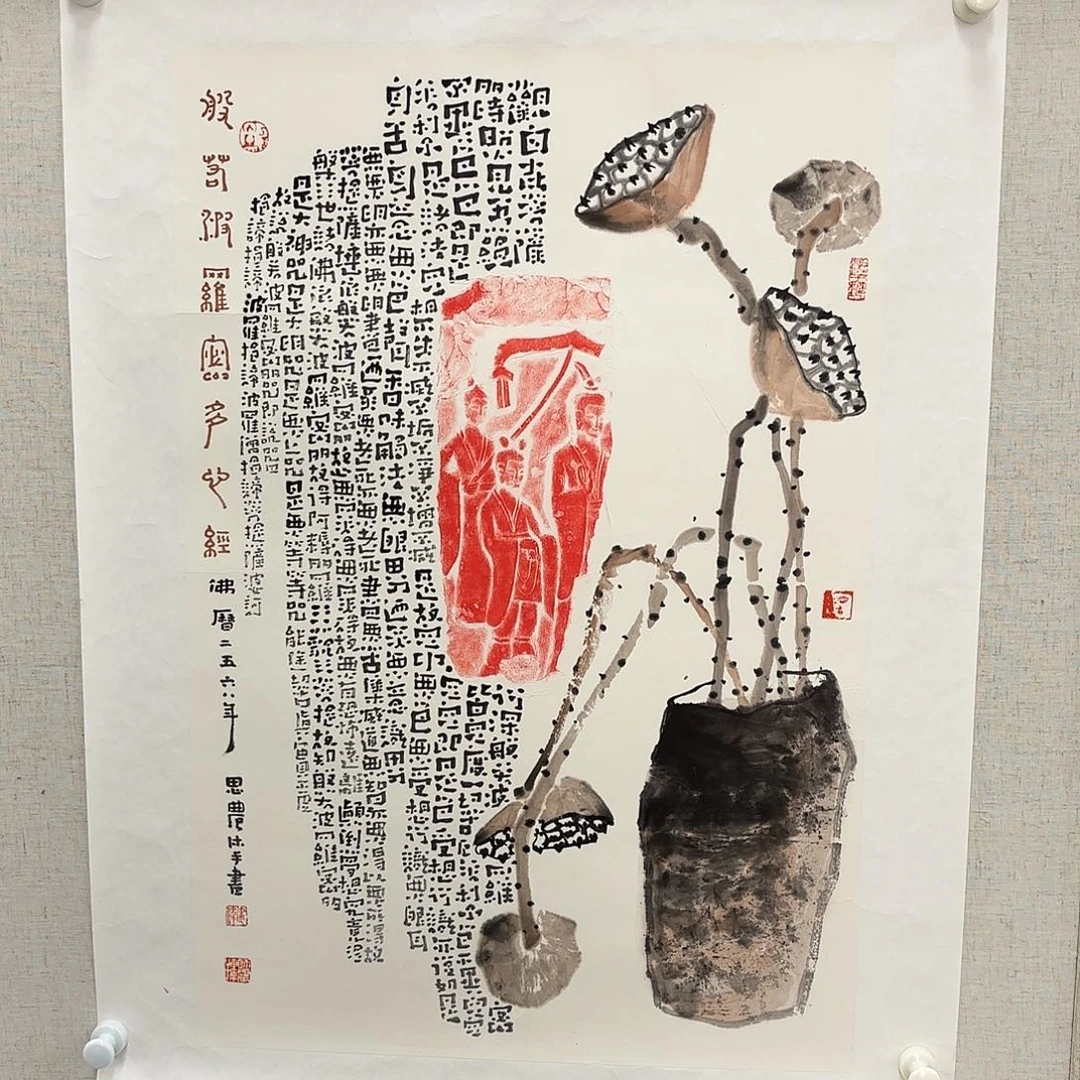 觀自在菩薩
行深般若波羅蜜
多時照見五蘊
皆空度一切苦厄舍利子色不異空
不異色色即是
空空即是色受想行識亦復如是
舍利子是諸法空相不生不滅不垢不淨不增不減是故空中無色無受想行識無眼耳
鼻舌身意無色聲香味觸法無眼界乃至無意識界
無無明亦無無明盡乃至無老死亦無老死盡無苦集滅道無智亦無得以無所得故
菩提薩埵依般若波羅蜜多故心無罣礙無罣礙故無有恐怖遠離顛倒夢想究竟涅
槃三世諸佛依般若波羅蜜多故得阿耨多羅三藐三菩提故知般若波羅蜜多
是大神咒是大明咒是無上咒是無等等咒能除一切苦真實不虛
故說般若波羅蜜多咒即說咒曰
揭諦揭諦波羅揭諦波羅僧揭諦菩提薩婆訶
般若波羅蜜多心經 佛曆二五六八年 思農沐手書